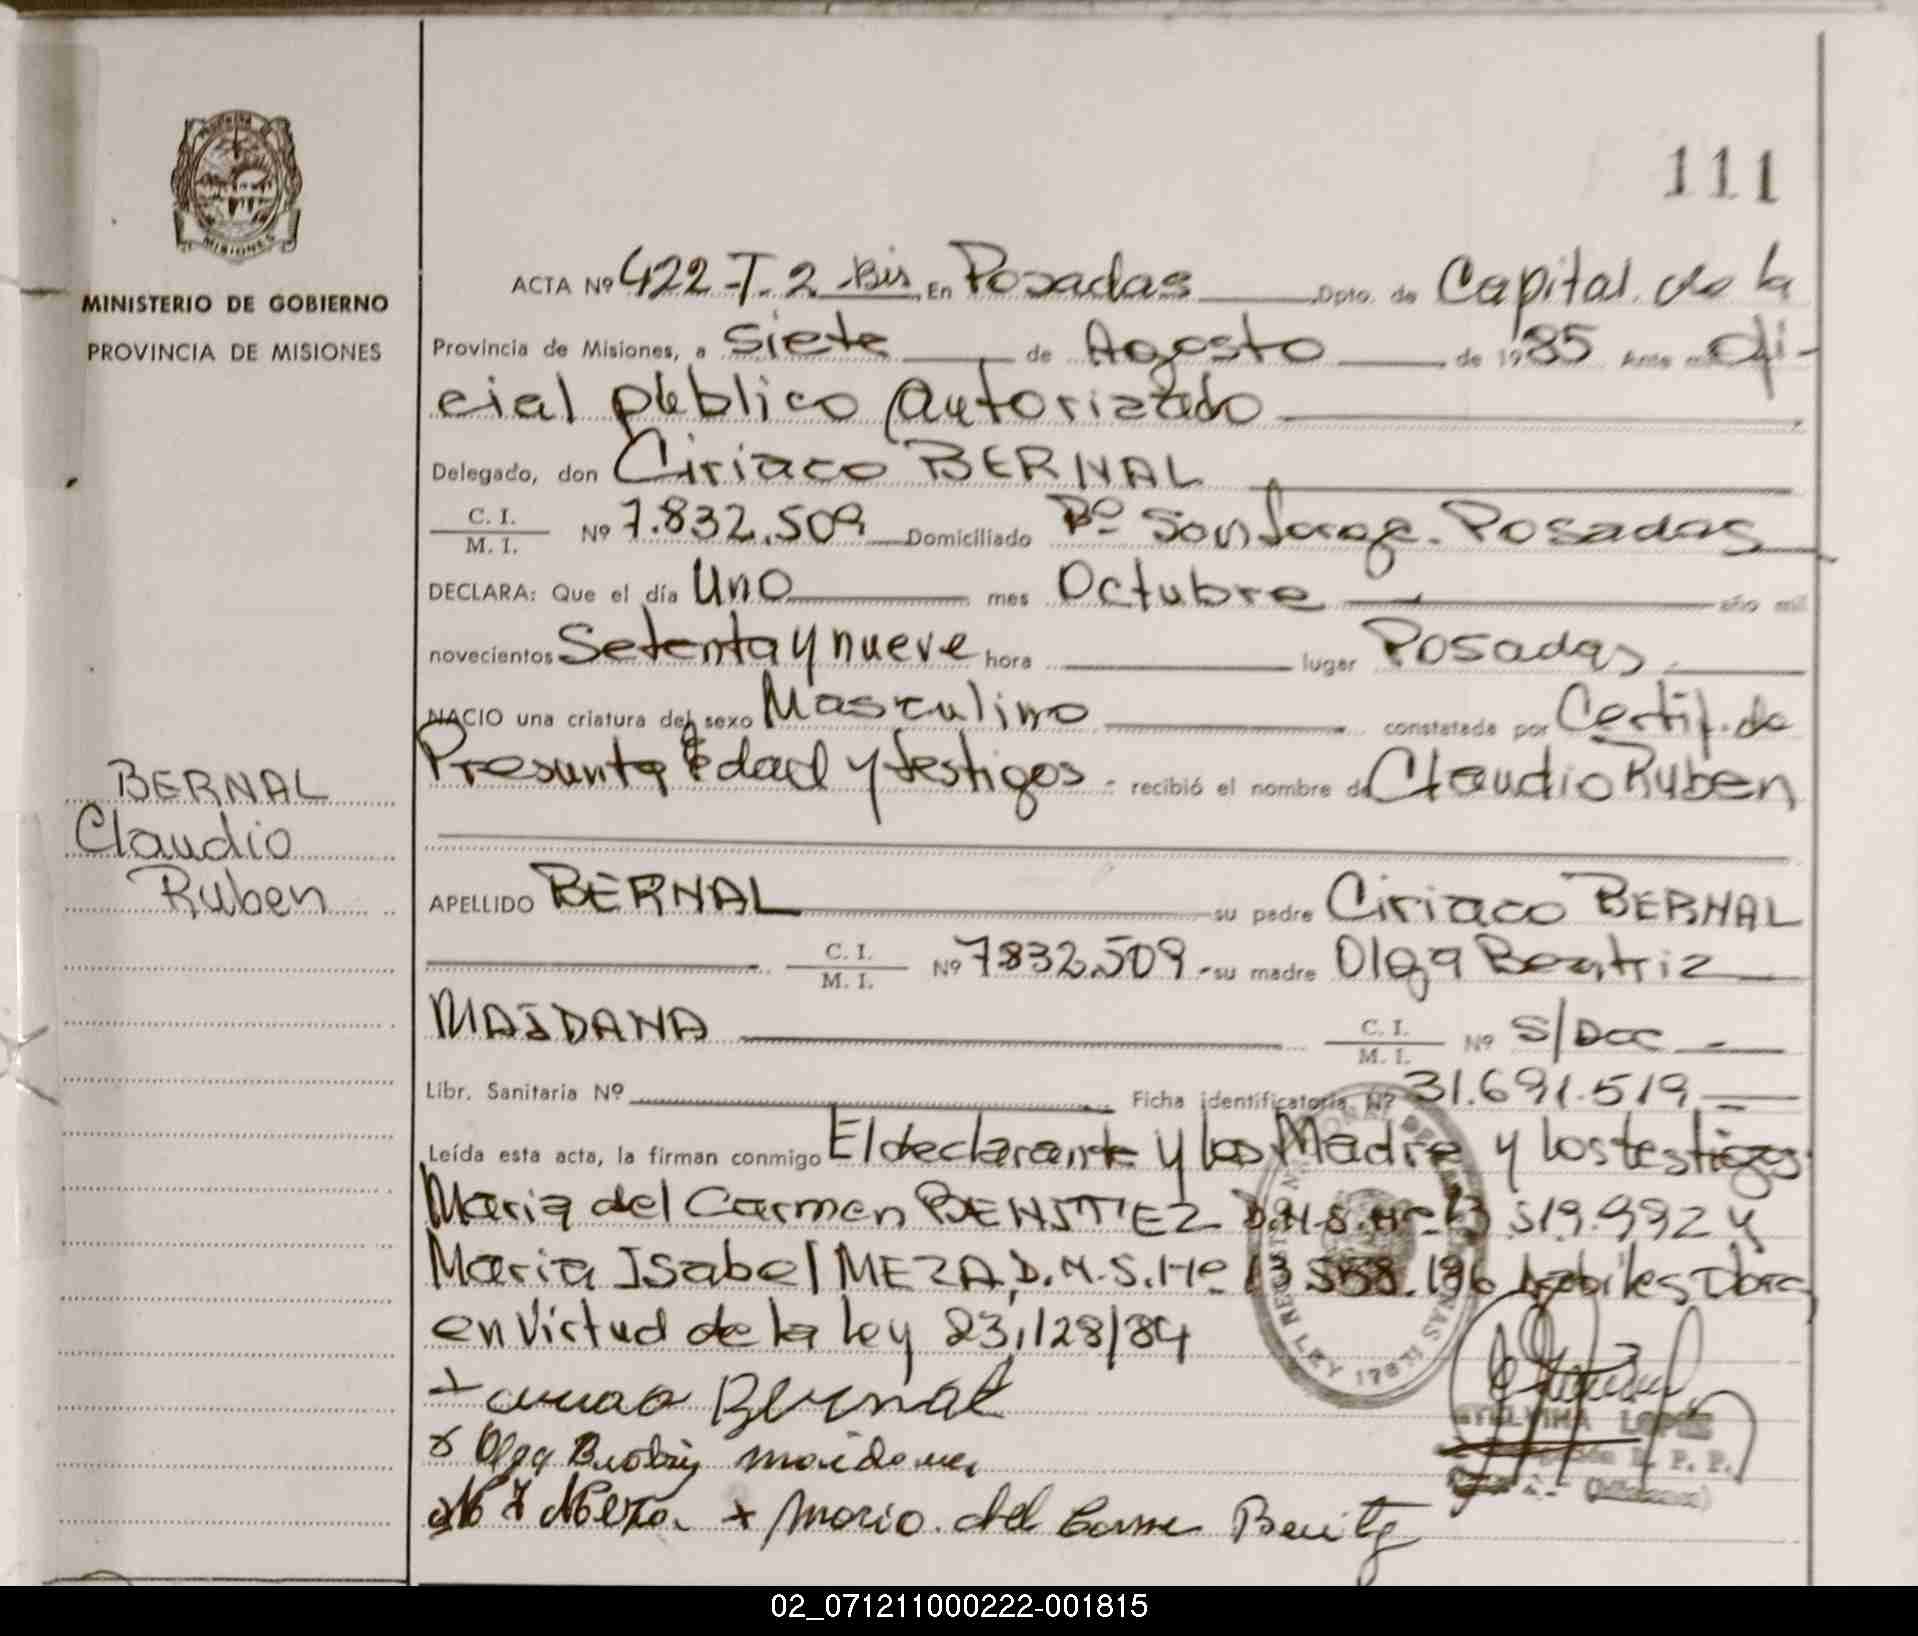 111
PROVINCIA DE
MISIONES
MINISTERIO DE GOBIERNO
PROVINCIA DE MISIONES
BERNAL
Claudio
Ruben
ACTA Nº 422-T. 2 Bis En Posadas Dpto. de Capital de la
Provincia de Misiones, a Siete de Agosto de 1985 Ante mi Ofi-
cial público Autorizado
Delegado, don Ciriaco BERNAL
C. I.
M. I. Nº 7.832.509 Domiciliado Bº San Jorge. Posadas
DECLARA: Que el día Uno mes Octubre año mil
novecientos Setenta y nueve hora lugar Posadas
NACIO una criatura del sexo Masculino constatada por Certif. de
Presunta Edad y testigos recibió el nombre de Claudio Ruben
APELLIDO BERNAL su padre Ciriaco BERNAL
C. I.
M. I. Nº 7832.509 su madre Olga Beatriz
MAIDANA C. I.
M. I. Nº S/Doc
Libr. Sanitaria Nº Ficha identificatoria Nº 31.691.519
Leída esta acta, la firman conmigo El declarante y la Madre y los testigos
Maria del Carmen BENITEZ D.N.I. Nº 13 519.992 y
Maria Isabel MEZA, D.N.I. Nº 13 558.196 habiles
en Virtud de la Ley 23.128/84
Bernal
x Olga Beatriz maidana
Meza. x Maria del Carmen Benitez
LEY 17671
LOPEZ
(Misiones)
02_071211000222-001815